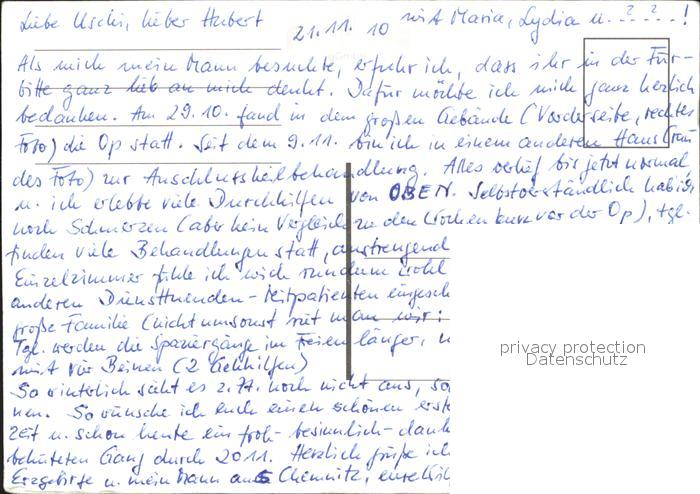 Liebe Uschi, lieber Hubert 21.11.10 mit Maria, Lydia u. ? ? !
Als mich mein Mann besuchte, erfuhr ich, dass ihr in der Für-
bitte ganz lieb an mich denkt. Dafür möchte ich mich ganz herzlich
bedanken. Am 29.10. fand in dem großen Gebäude (Vorderseite, rechtes
Foto) die Op statt. Seit dem 9.11. bin ich in einem anderen Haus
des Foto) zur Anschlussheilbehandlung. Alles verlief bis jetzt normal,
u. ich erlebte viele Durchhilfen von OBEN. Selbstverständlich hab ich
noch Schmerzen (aber kein Vergleich zu den Wochen kurz vor der Op), tgl.
finden viele Behandlungen statt, anstrengend
Einzelzimmer fühle ich mich rundum wohl
anderen Diensttuenden - Mitpatienten eingesch
große Familie (nicht umsonst ruft man wir:
Tgl. werden die Spaziergänge im Freien länger, u
mit vier Beinen (2 Gehhilfen)
So winterlich sieht es z. Zt. noch nicht aus, so
nen. So wünsche ich euch einen schönen erste
zeit u. schon heute ein froh- besinnlich- dank
behüteten Gang durch 2011. Herzlich grüße ich
Erzgebirge u. mein Mann aus Chemnitz, eure
privacy protection
Datenschutz